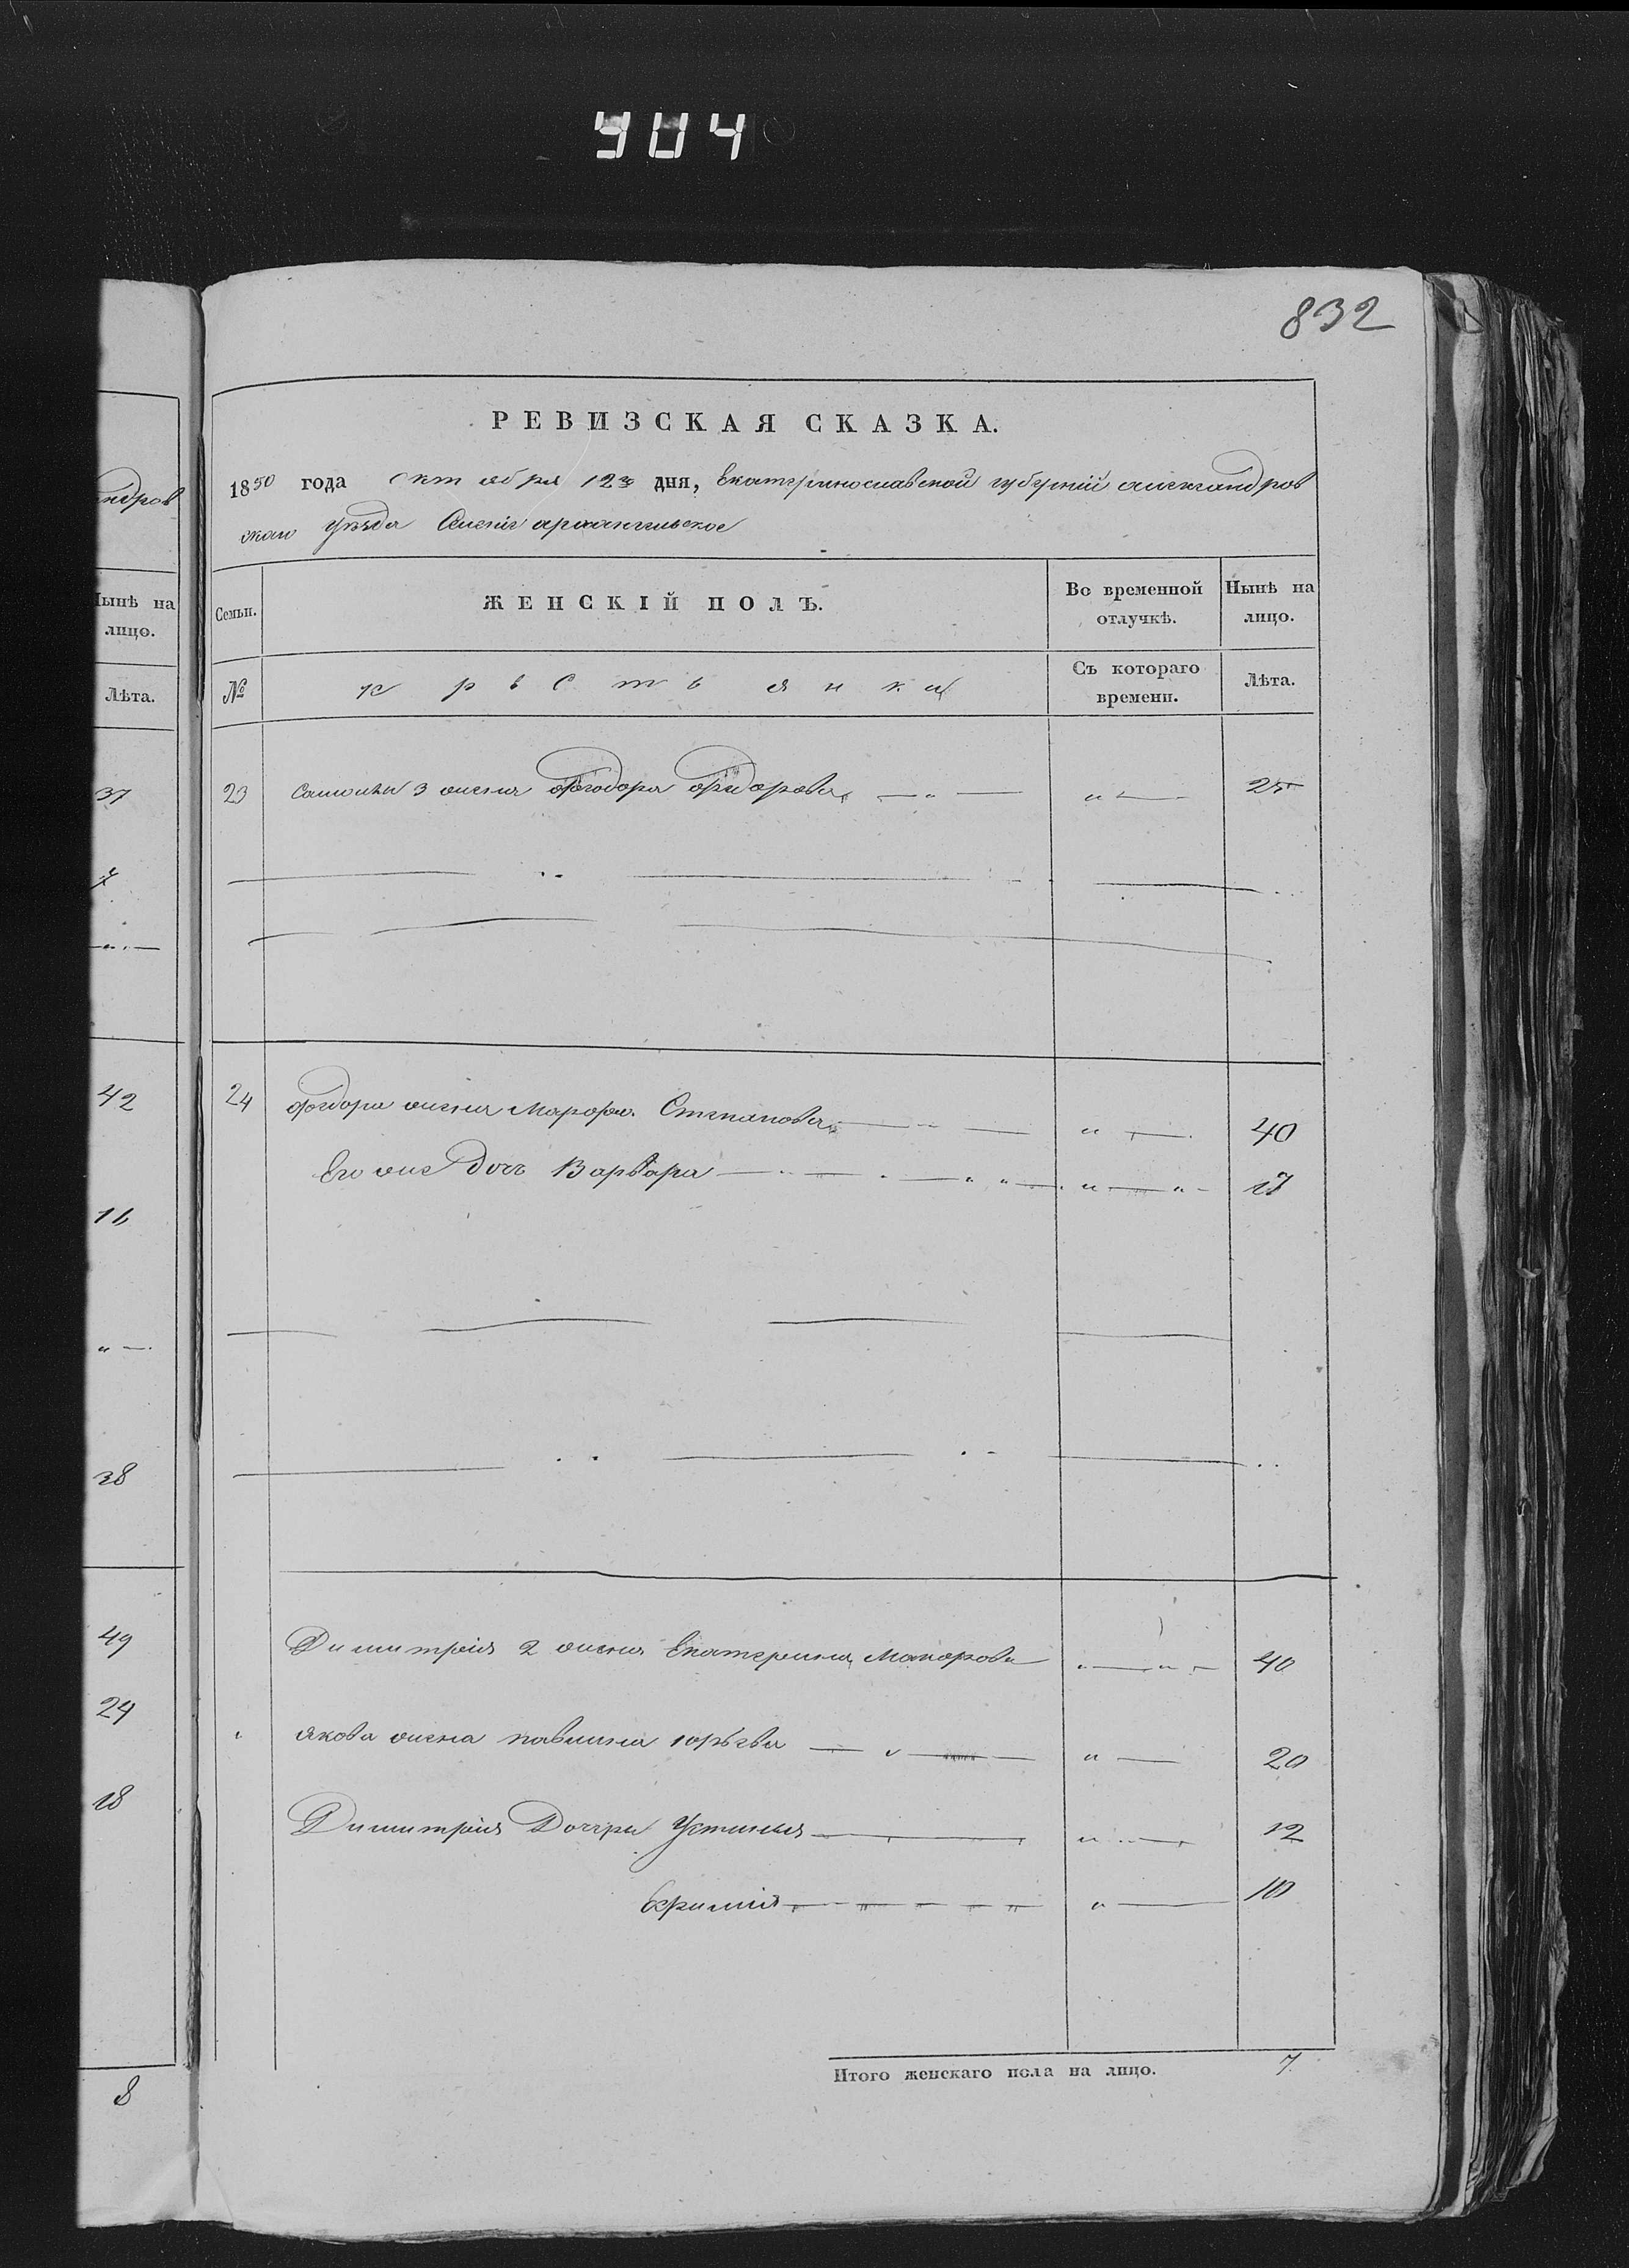 904
832
РЕВИЗСКАЯ СКАЗКА.
1850 года Октября 12го дня, Екатеринославской губерніи александров
скаго уѣзда Селеніе архангельское
ндров
Нынѣ на
лицо.
Лѣта.
37
7
42
16
38
49
24
18
8
Семьи. ЖЕНСКІЙ ПОЛЪ. Во временной отлучкѣ. Нынѣ на лицо.
№ крестьянки Съ котораго времени. Лѣта.
23 3 жена Феодора 25
24 Федора жена Марфа Степанова 40
Его же дочь Варвара 17
Димитрія 2 жена Екатерина Макарова 40
якова жена павлина юрьева 20
Димитрія Дочери Устинья 12
10
Итого женскаго пола на лицо. 7